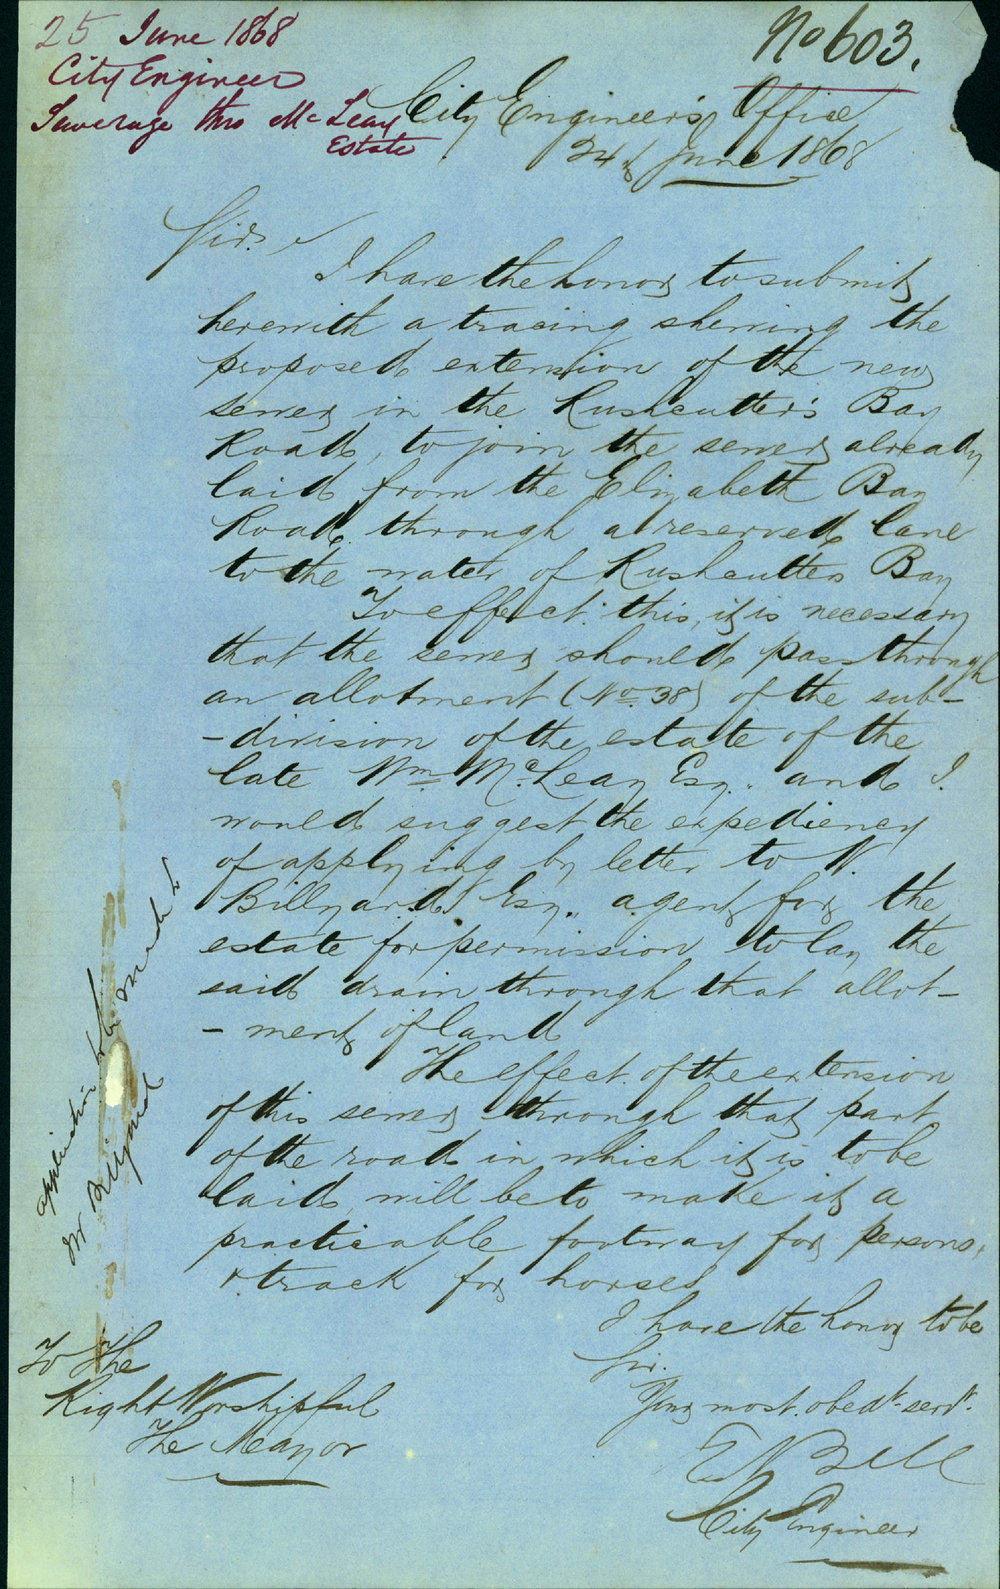 25 June 1868
City Engineer
Sewerage thro McLeay
Estate
No 603.
City Engineer's Office
24th June 1868
Sir,
I have the honor to submit
herewith a tracing shewing the
proposed extension of the new
sewer in the Rushcutter's Bay
Road, to join the sewer already
laid from the Elizabeth Bay
Road through a reserved lane
to the water of Rushcutters Bay
To effect this, it is necessary
that the sewer should pass through
an allotment (No. 38) of the sub-
-division of the estate of the
late Wm. McLeay Esq., and I
would suggest the expediency
of applying by letter to N.
Billyard Esq., agent for the
estate for permission to lay the
said drain through that allot-
-ment of land
The effect of the extension
of this sewer through that part
of the road in which it is to be
laid, will be to make it a
practicable footway for persons,
& track for horses
I have the honor to be
Sir.
Your most obedt. servt.
E Bell
City Engineer
To The
Right Worshipful
The Mayor
application to be made to
Mr Billyard